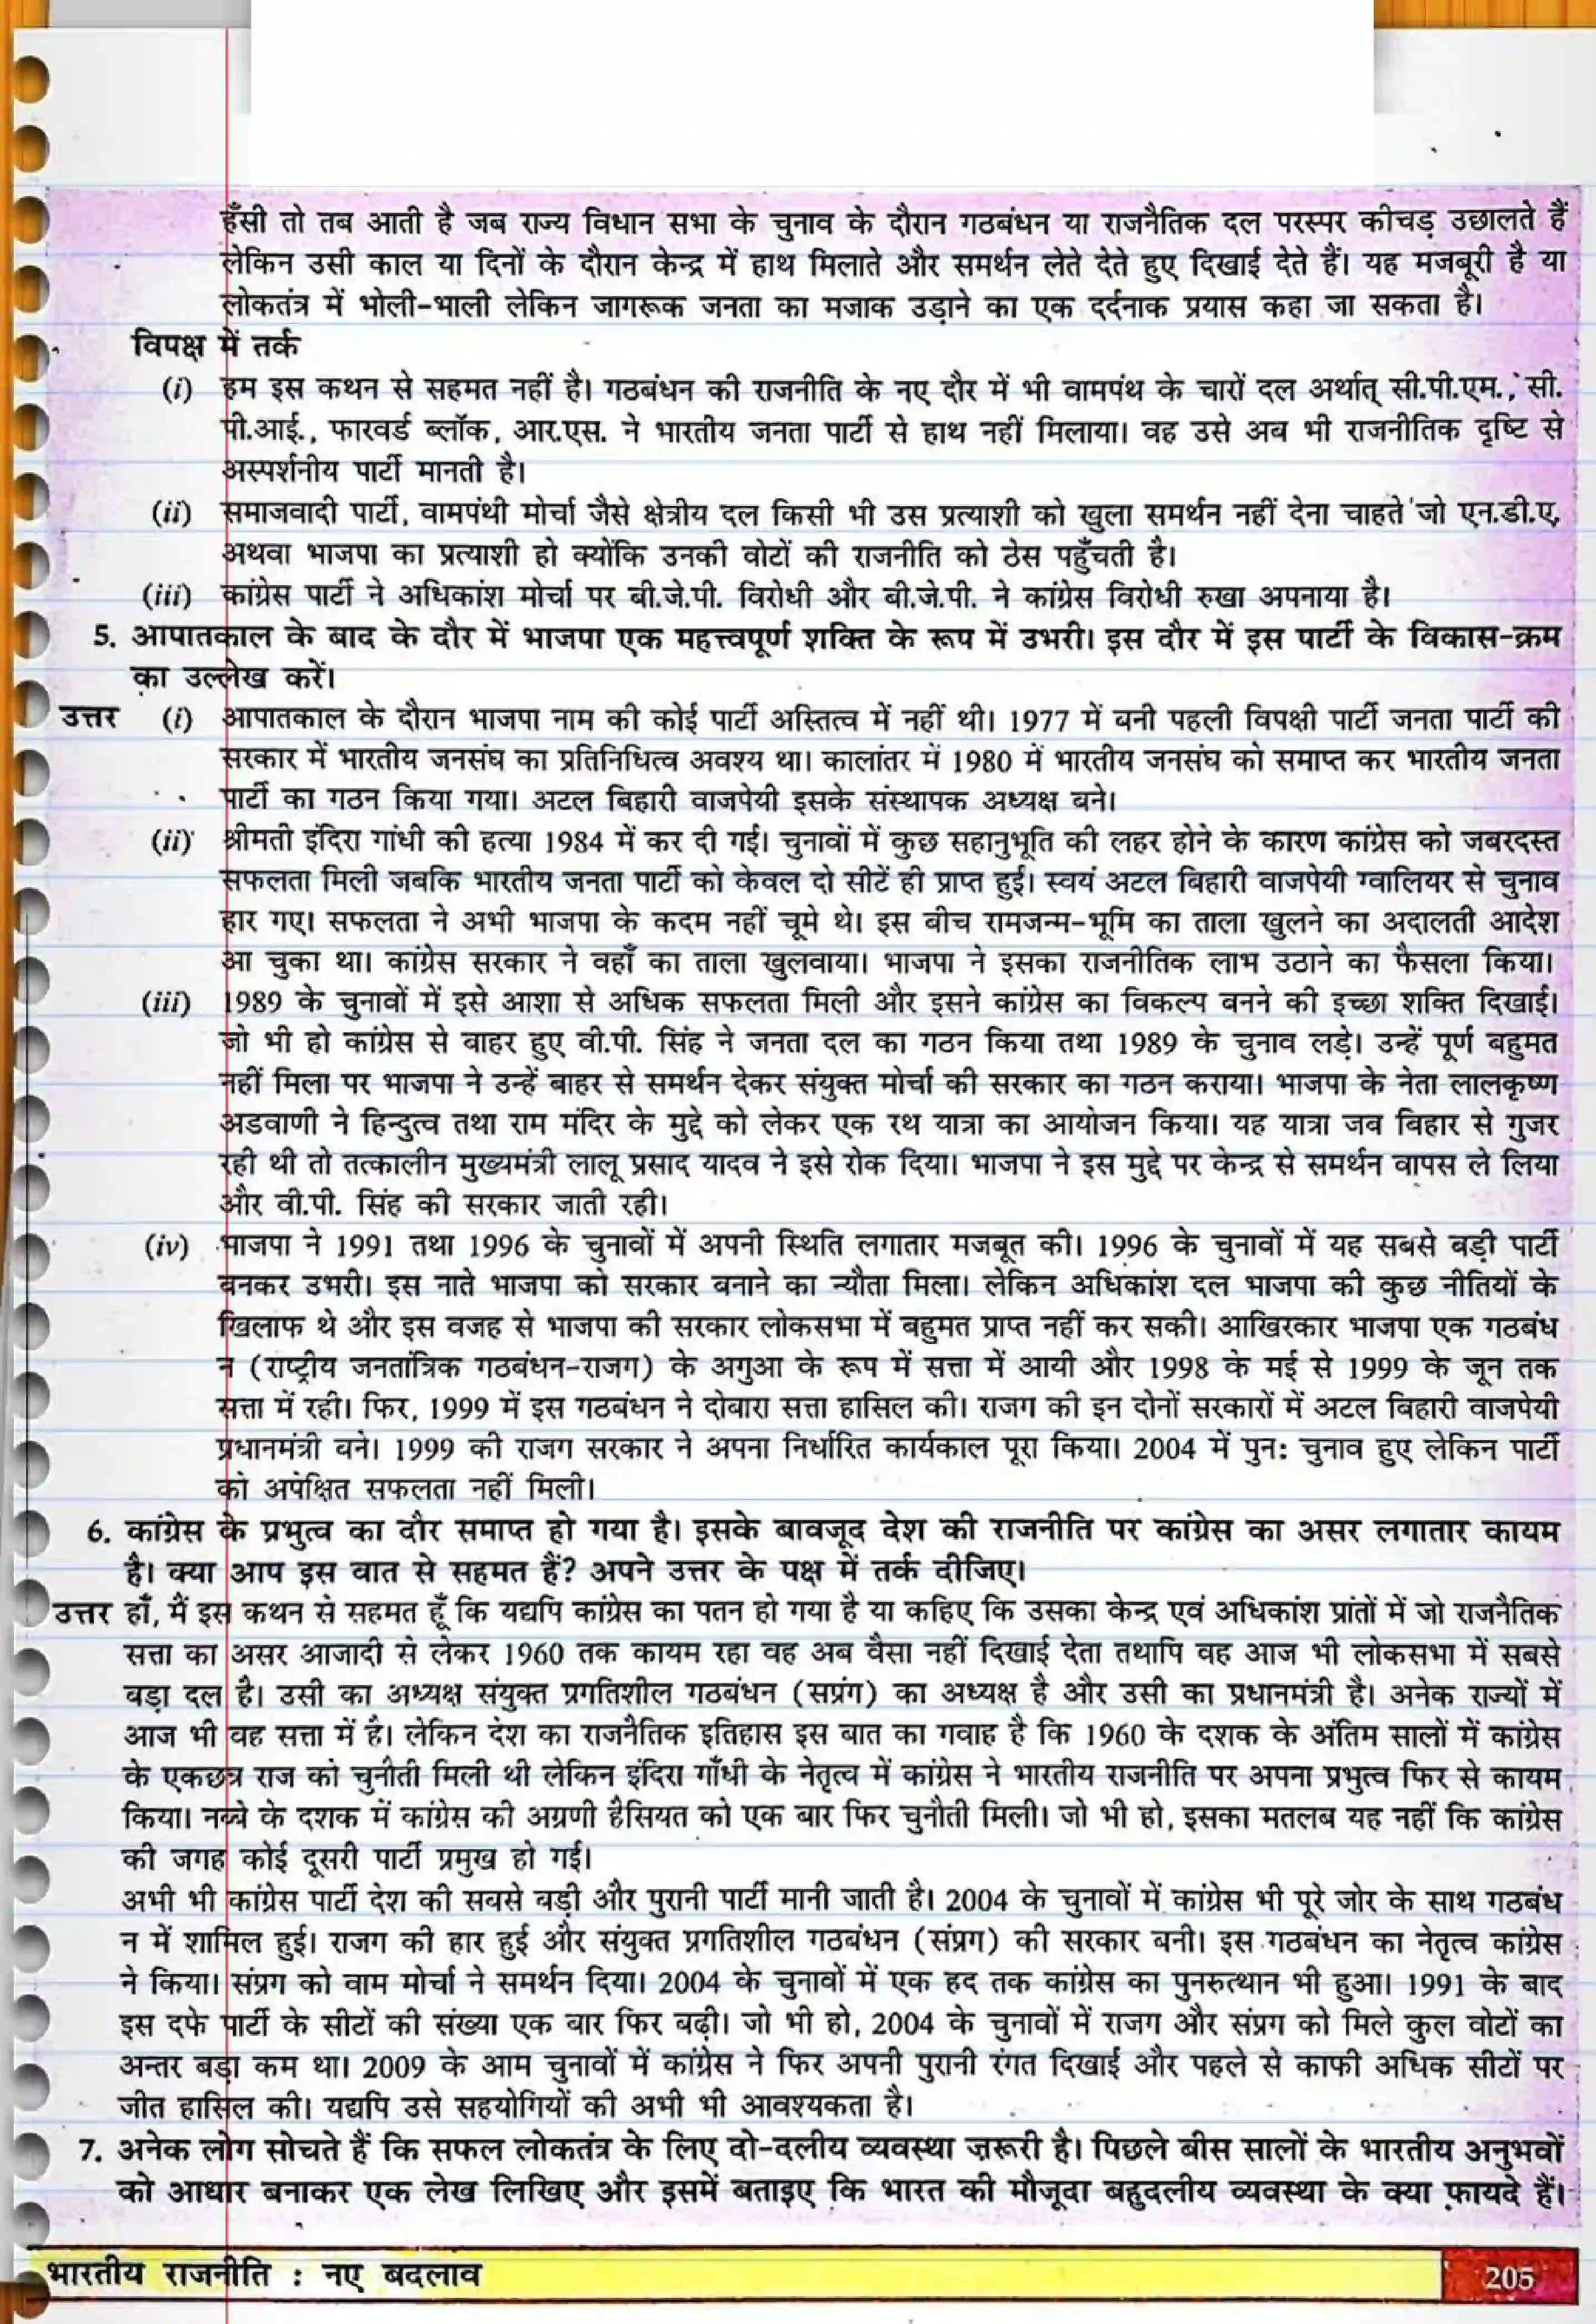 हँसी तो तब आती है जब राज्य विधान सभा के चुनाव के दौरान गठबंधन या राजनैतिक दल परस्पर कीचड़ उछालते हैं
लेकिन उसी काल या दिनों के दौरान केन्द्र में हाथ मिलाते और समर्थन लेते देते हुए दिखाई देते हैं। यह मजबूरी है या
लोकतंत्र में भोली-भाली लेकिन जागरूक जनता का मजाक उड़ाने का एक दर्दनाक प्रयास कहा जा सकता है।
विपक्ष में तर्क
(i) हम इस कथन से सहमत नहीं है। गठबंधन की राजनीति के नए दौर में भी वामपंथ के चारों दल अर्थात् सी.पी.एम., सी.
पी.आई., फारवर्ड ब्लॉक, आर.एस. ने भारतीय जनता पार्टी से हाथ नहीं मिलाया। वह उसे अब भी राजनीतिक दृष्टि से
अस्पर्शनीय पार्टी मानती है।
(ii) समाजवादी पार्टी, वामपंथी मोर्चा जैसे क्षेत्रीय दल किसी भी उस प्रत्याशी को खुला समर्थन नहीं देना चाहते जो एन.डी.ए.
अथवा भाजपा का प्रत्याशी हो क्योंकि उनकी वोटों की राजनीति को ठेस पहुँचती है।
(iii) कांग्रेस पार्टी ने अधिकांश मोर्चा पर बी.जे.पी. विरोधी और बी.जे.पी. ने कांग्रेस विरोधी रुखा अपनाया है।
5. आपातकाल के बाद के दौर में भाजपा एक महत्त्वपूर्ण शक्ति के रूप में उभरी। इस दौर में इस पार्टी के विकास-क्रम
का उल्लेख करें।
उत्तर (i) आपातकाल के दौरान भाजपा नाम की कोई पार्टी अस्तित्व में नहीं थी। 1977 में बनी पहली विपक्षी पार्टी जनता पार्टी की
सरकार में भारतीय जनसंघ का प्रतिनिधित्व अवश्य था। कालांतर में 1980 में भारतीय जनसंघ को समाप्त कर भारतीय जनता
पार्टी का गठन किया गया। अटल बिहारी वाजपेयी इसके संस्थापक अध्यक्ष बने।
(ii) श्रीमती इंदिरा गांधी की हत्या 1984 में कर दी गई। चुनावों में कुछ सहानुभूति की लहर होने के कारण कांग्रेस को जबरदस्त
सफलता मिली जबकि भारतीय जनता पार्टी को केवल दो सीटें ही प्राप्त हुई। स्वयं अटल बिहारी वाजपेयी ग्वालियर से चुनाव
हार गए। सफलता ने अभी भाजपा के कदम नहीं चूमे थे। इस बीच रामजन्म-भूमि का ताला खुलने का अदालती आदेश
आ चुका था। कांग्रेस सरकार ने वहाँ का ताला खुलवाया। भाजपा ने इसका राजनीतिक लाभ उठाने का फैसला किया।
(iii) 1989 के चुनावों में इसे आशा से अधिक सफलता मिली और इसने कांग्रेस का विकल्प बनने की इच्छा शक्ति दिखाई।
जो भी हो कांग्रेस से बाहर हुए वी.पी. सिंह ने जनता दल का गठन किया तथा 1989 के चुनाव लड़े। उन्हें पूर्ण बहुमत
नहीं मिला पर भाजपा ने उन्हें बाहर से समर्थन देकर संयुक्त मोर्चा की सरकार का गठन कराया। भाजपा के नेता लालकृष्ण
अडवाणी ने हिन्दुत्व तथा राम मंदिर के मुद्दे को लेकर एक रथ यात्रा का आयोजन किया। यह यात्रा जब बिहार से गुजर
रही थी तो तत्कालीन मुख्यमंत्री लालू प्रसाद यादव ने इसे रोक दिया। भाजपा ने इस मुद्दे पर केन्द्र से समर्थन वापस ले लिया
और वी.पी. सिंह की सरकार जाती रही।
(iv) भाजपा ने 1991 तथा 1996 के चुनावों में अपनी स्थिति लगातार मजबूत की। 1996 के चुनावों में यह सबसे बड़ी पार्टी
बनकर उभरी। इस नाते भाजपा को सरकार बनाने का न्यौता मिला। लेकिन अधिकांश दल भाजपा की कुछ नीतियों के
खिलाफ थे और इस वजह से भाजपा की सरकार लोकसभा में बहुमत प्राप्त नहीं कर सकी। आखिरकार भाजपा एक गठबंध
न (राष्ट्रीय जनतांत्रिक गठबंधन-राजग) के अगुआ के रूप में सत्ता में आयी और 1998 के मई से 1999 के जून तक
सत्ता में रही। फिर, 1999 में इस गठबंधन ने दोबारा सत्ता हासिल की। राजग की इन दोनों सरकारों में अटल बिहारी वाजपेयी
प्रधानमंत्री बने। 1999 की राजग सरकार ने अपना निर्धारित कार्यकाल पूरा किया। 2004 में पुन: चुनाव हुए लेकिन पार्टी
को अपेक्षित सफलता नहीं मिली।
6. कांग्रेस के प्रभुत्व का दौर समाप्त हो गया है। इसके बावजूद देश की राजनीति पर कांग्रेस का असर लगातार कायम
है। क्या आप इस बात से सहमत हैं? अपने उत्तर के पक्ष में तर्क दीजिए।
उत्तर हाँ, मैं इस कथन से सहमत हूँ कि यद्यपि कांग्रेस का पतन हो गया है या कहिए कि उसका केन्द्र एवं अधिकांश प्रांतों में जो राजनैतिक
सत्ता का असर आजादी से लेकर 1960 तक कायम रहा वह अब वैसा नहीं दिखाई देता तथापि वह आज भी लोकसभा में सबसे
बड़ा दल है। उसी का अध्यक्ष संयुक्त प्रगतिशील गठबंधन (सप्रंग) का अध्यक्ष है और उसी का प्रधानमंत्री है। अनेक राज्यों में
आज भी वह सत्ता में है। लेकिन देश का राजनैतिक इतिहास इस बात का गवाह है कि 1960 के दशक के अंतिम सालों में कांग्रेस
के एकछत्र राज को चुनौती मिली थी लेकिन इंदिरा गाँधी के नेतृत्व में कांग्रेस ने भारतीय राजनीति पर अपना प्रभुत्व फिर से कायम
किया। नब्बे के दशक में कांग्रेस की अग्रणी हैसियत को एक बार फिर चुनौती मिली। जो भी हो, इसका मतलब यह नहीं कि कांग्रेस
की जगह कोई दूसरी पार्टी प्रमुख हो गई।
अभी भी कांग्रेस पार्टी देश की सबसे बड़ी और पुरानी पार्टी मानी जाती है। 2004 के चुनावों में कांग्रेस भी पूरे जोर के साथ गठबंध
न में शामिल हुई। राजग की हार हुई और संयुक्त प्रगतिशील गठबंधन (संप्रग) की सरकार बनी। इस गठबंधन का नेतृत्व कांग्रेस
ने किया। संप्रग को वाम मोर्चा ने समर्थन दिया। 2004 के चुनावों में एक हद तक कांग्रेस का पुनरुत्थान भी हुआ। 1991 के बाद
इस दफे पार्टी के सीटों की संख्या एक बार फिर बढ़ी। जो भी हो, 2004 के चुनावों में राजग और संप्रग को मिले कुल वोटों का
अन्तर बड़ा कम था। 2009 के आम चुनावों में कांग्रेस ने फिर अपनी पुरानी रंगत दिखाई और पहले से काफी अधिक सीटों पर
जीत हासिल की। यद्यपि उसे सहयोगियों की अभी भी आवश्यकता है।
7. अनेक लोग सोचते हैं कि सफल लोकतंत्र के लिए दो-दलीय व्यवस्था ज़रूरी है। पिछले बीस सालों के भारतीय अनुभवों
को आधार बनाकर एक लेख लिखिए और इसमें बताइए कि भारत की मौजूदा बहुदलीय व्यवस्था के क्या फायदे हैं।
भारतीय राजनीति : नए बदलाव 205